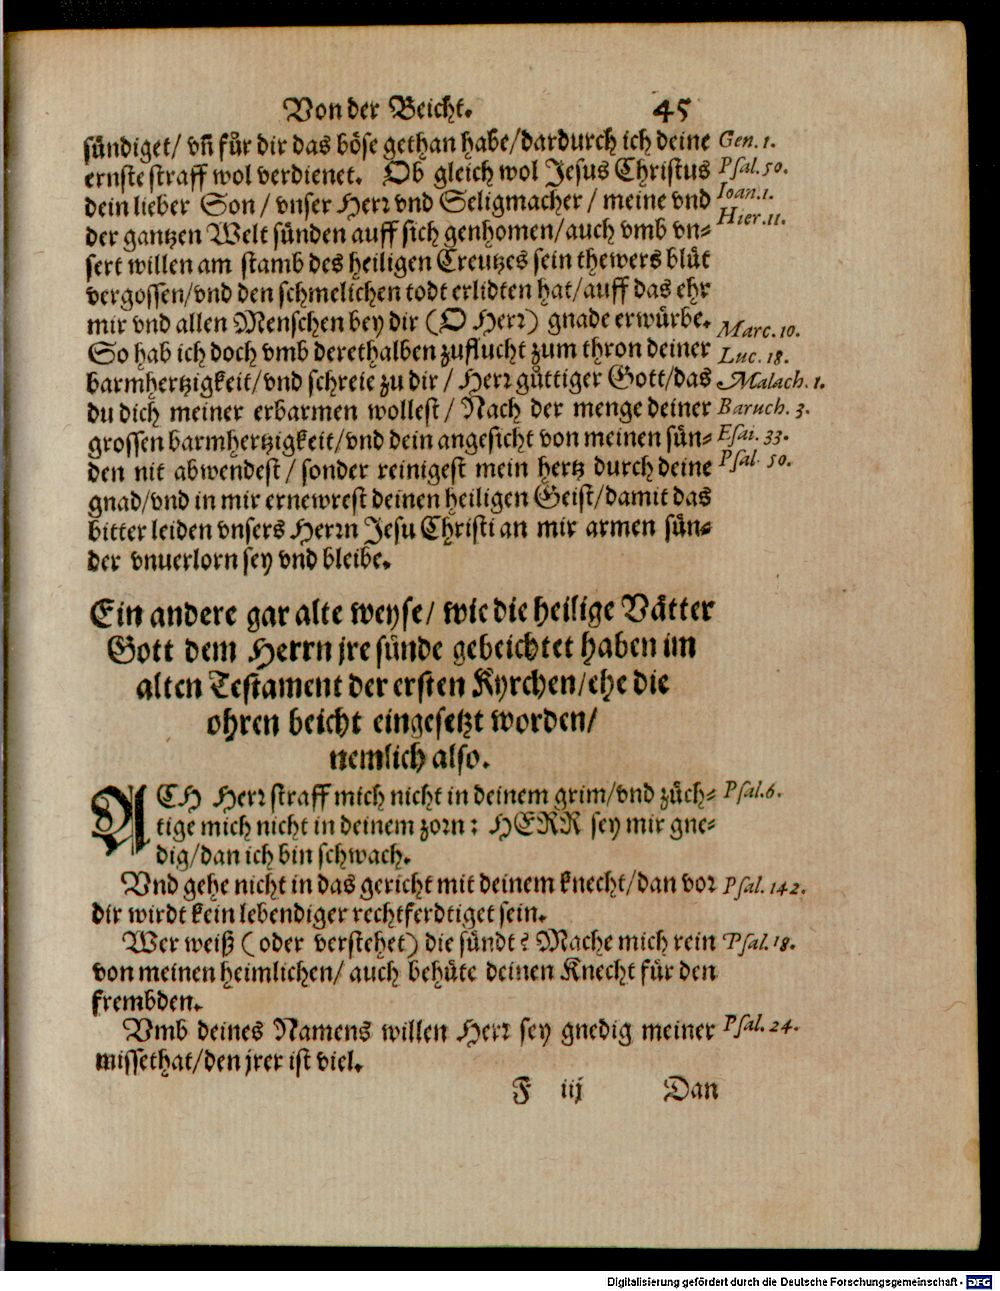 Von der Beicht. 45
sündiget/ vñ für dir das böse gethan habe/dardurch ich deine Gen. 1.
ernste straff wol verdienet. Ob gleich wol Jesus Christus Psal. 50.
dein lieber Son/ vnser Herr vnd Seligmacher/ meine vnd Ioan. 1.
der gantzen Welt sünden auff sich genhomen/auch vmb vn- Hier. 11.
sert willen am stamb des heiligen Creutzes sein thewers blůt
vergossen/vnd den schmelichen todt erlidten hat/auff das ehr
mir vnd allen Menschen bey dir (O Herr) gnade erwürbe. Marc. 10.
So hab ich doch vmb derethalben zuflucht zum thron deiner Luc. 18.
barmhertzigkeit/vnd schreie zu dir/ Herr güttiger Gott/das Malach. 1.
du dich meiner erbarmen wollest/ Nach der menge deiner Baruch. 3.
grossen barmhertzigkeit/vnd dein angesicht von meinen sün- Esai. 33.
den nit abwendest/ sonder reinigest mein hertz durch deine Psal. 50.
gnad/vnd in mir ernewrest deinen heiligen Geist/damit das
bitter leiden vnsers Herrn Jesu Christi an mir armen sün-
der vnuerlorn sey vnd bleibe.
Ein andere gar alte weyse/ wie die heilige Vätter
Gott dem Herrn jre sünde gebeichtet haben im
alten Testament der ersten Kyrchen/ehe die
ohren beicht eingesetzt worden/
nemlich also.
ACH Herr straff mich nicht in deinem grim/vnd züch- Psal. 6.
tige mich nicht in deinem zorn: HERR sey mir gne-
dig/dan ich bin schwach.
Vnd gehe nicht in das gericht mit deinem knecht/dan vor Psal. 142.
dir wirdt kein lebendiger rechtferdtiget sein.
Wer weiß (oder verstehet) die sündt? Mache mich rein Psal. 18.
von meinen heimlichen/ auch behüte deinen Knecht für den
frembden.
Vmb deines Namens willen Herr sey gnedig meiner Psal. 24.
missethat/den jrer ist viel.
F iij Dan
Digitalisierung gefördert durch die Deutsche Forschungsgemeinschaft - DFG